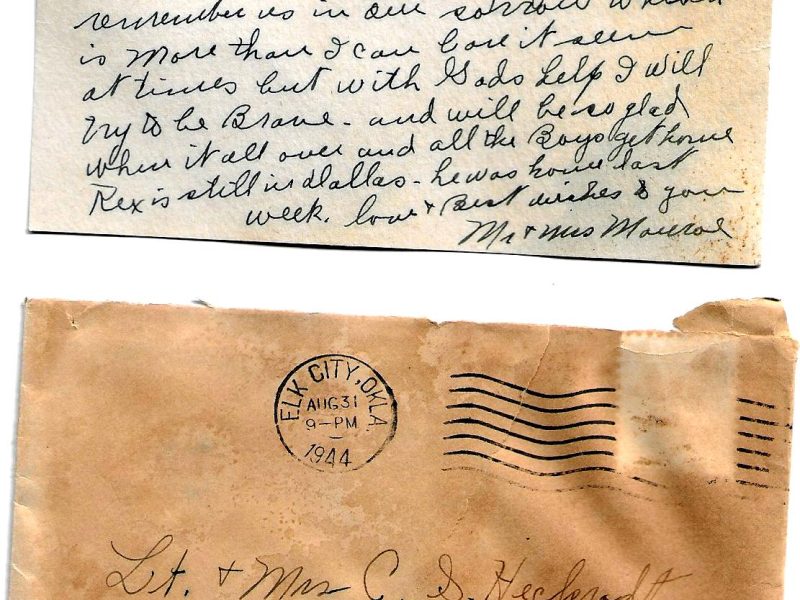 remember us in our sorrow which
is more than I can bare it seem
at times but with Gods help I will
try to be Brave - and will be so glad
when it all over and all the Boys get home
Rex is still in dallas - he was home last
week. love + Best wishes to you
Mr + Mrs Monroe
ELK CITY, OKLA.
AUG 31
9-PM
1944
Lt. + Mrs C. S.